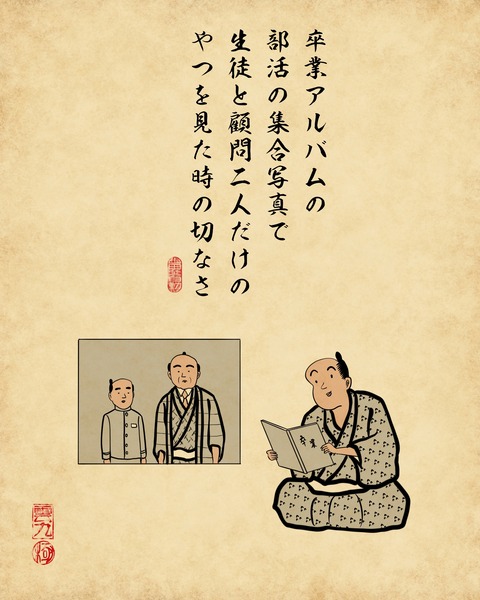 卒業アルバムの
部活の集合写真で
生徒と顧問二人だけの
やつを見た時の切なさ
卒業